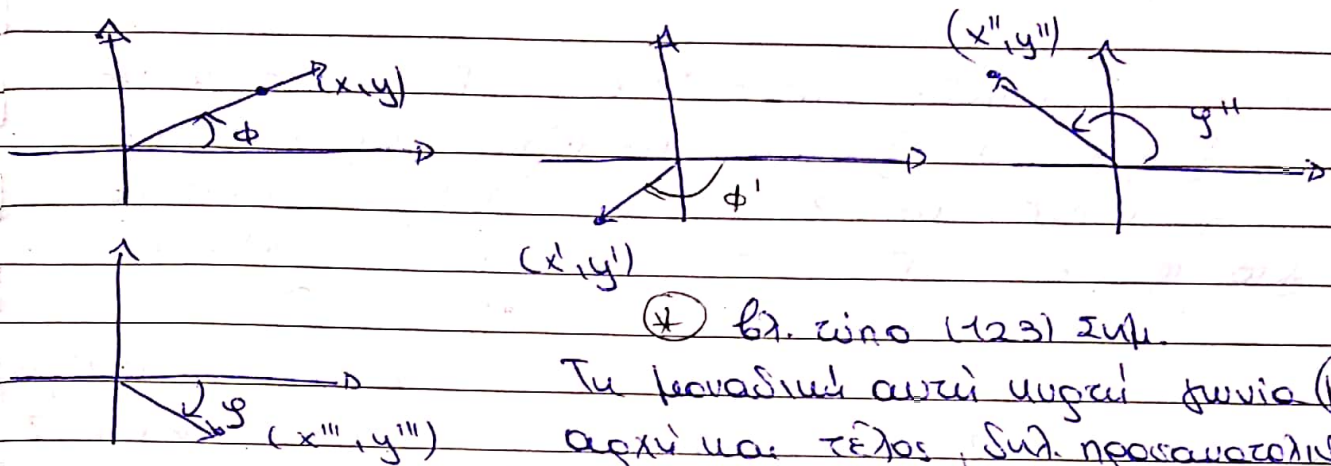 (x'',y'')
(x,y)
ϕ
ϕ'
φ''
(x',y')
⊛ βλ. τύπο (123) Σημ.
Τη μοναδική αυτή κυρτή γωνία (
φ
(x''',y''')
αρχή και τέλος, δηλ. προσανατολισ